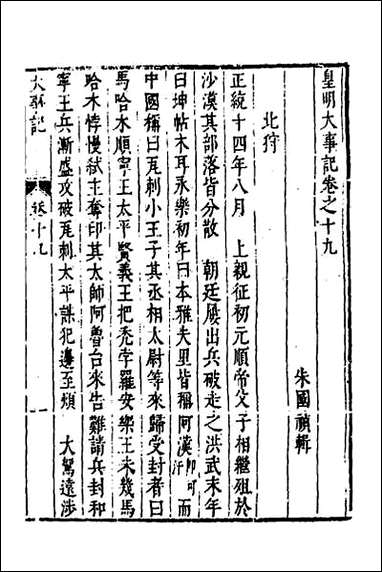 皇明大事記卷之十九
朱國禎輯
北狩
正統十四年八月 上親征初元順帝父子相繼殂於
沙漠其部落皆分散 朝廷屢出兵破走之洪武末年
曰坤帖木耳永樂初年曰本雅失里皆稱阿漢卽可汗而
中國稱曰瓦剌小王子其丞相太尉等來歸受封者曰
馬哈木順寧王太平賢義王把禿孛羅安樂王未幾馬
哈木悖慢弑主奪印其太師阿魯台來告難請兵封和
寧王兵漸盛攻破瓦剌太平謀犯邊至煩 大駕遠涉
大事記 卷十九 一